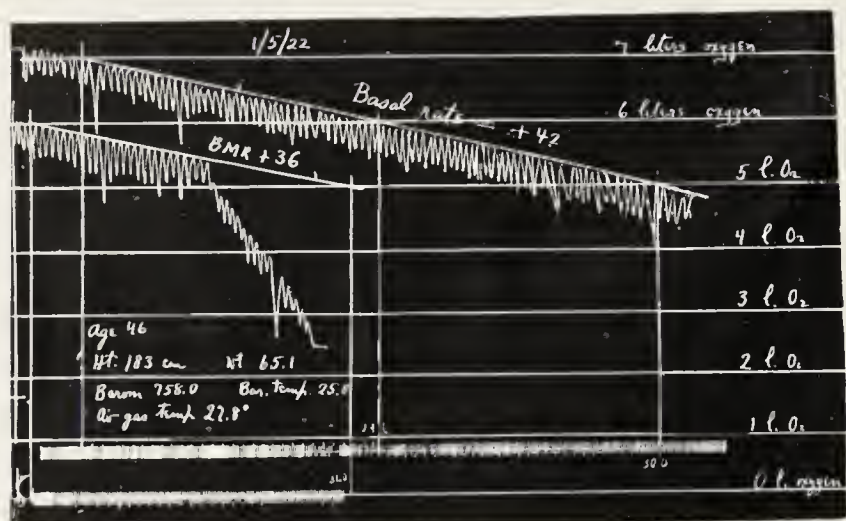 1/5/22
7 liters oxygen
Basal rate — +42
6 liters oxygen
BMR + 36
5 l. O₂
4 l. O₂
3 l. O₂
Age 46
Ht. 183 cm Wt 65.1
2 l. O₂
Barom 758.0 Bar. temp. 25.
Air gas temp 27.8°
1 l. O₂
30.0
0 l. oxygen